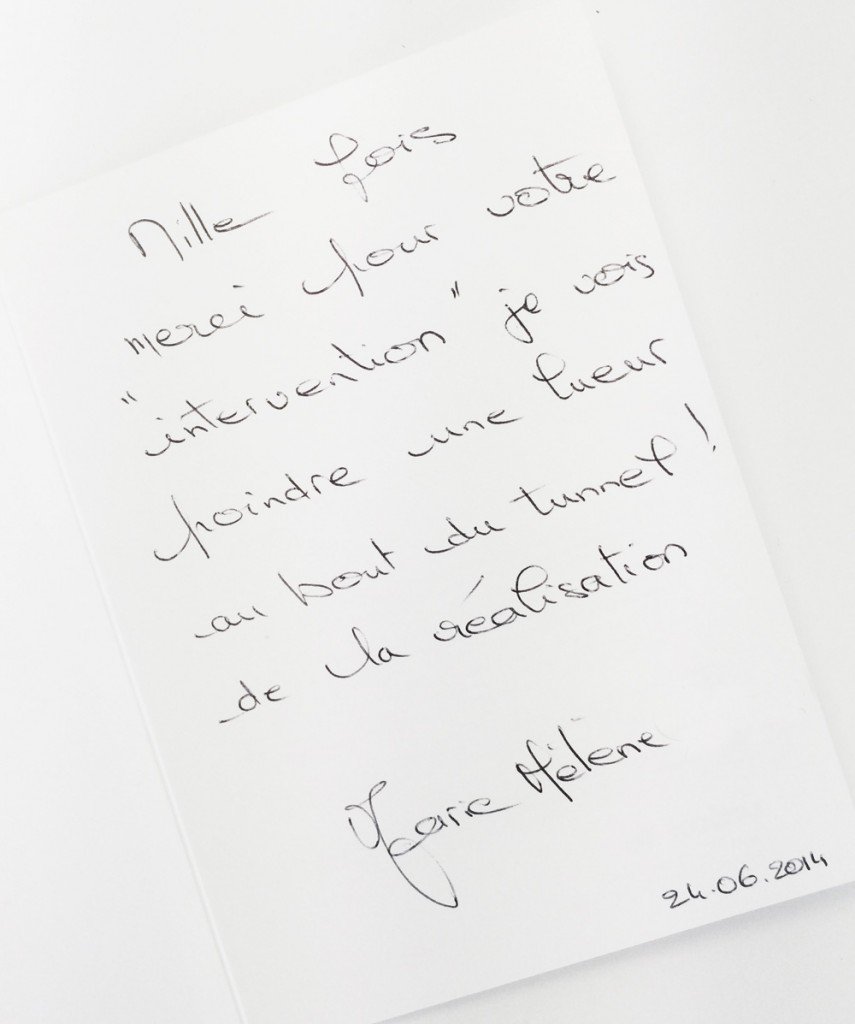 Mille fois
merci pour votre
"intervention" je vois
poindre une lueur
au bout du tunnel !
de la réalisation
Marie Hélène
24.06.2014